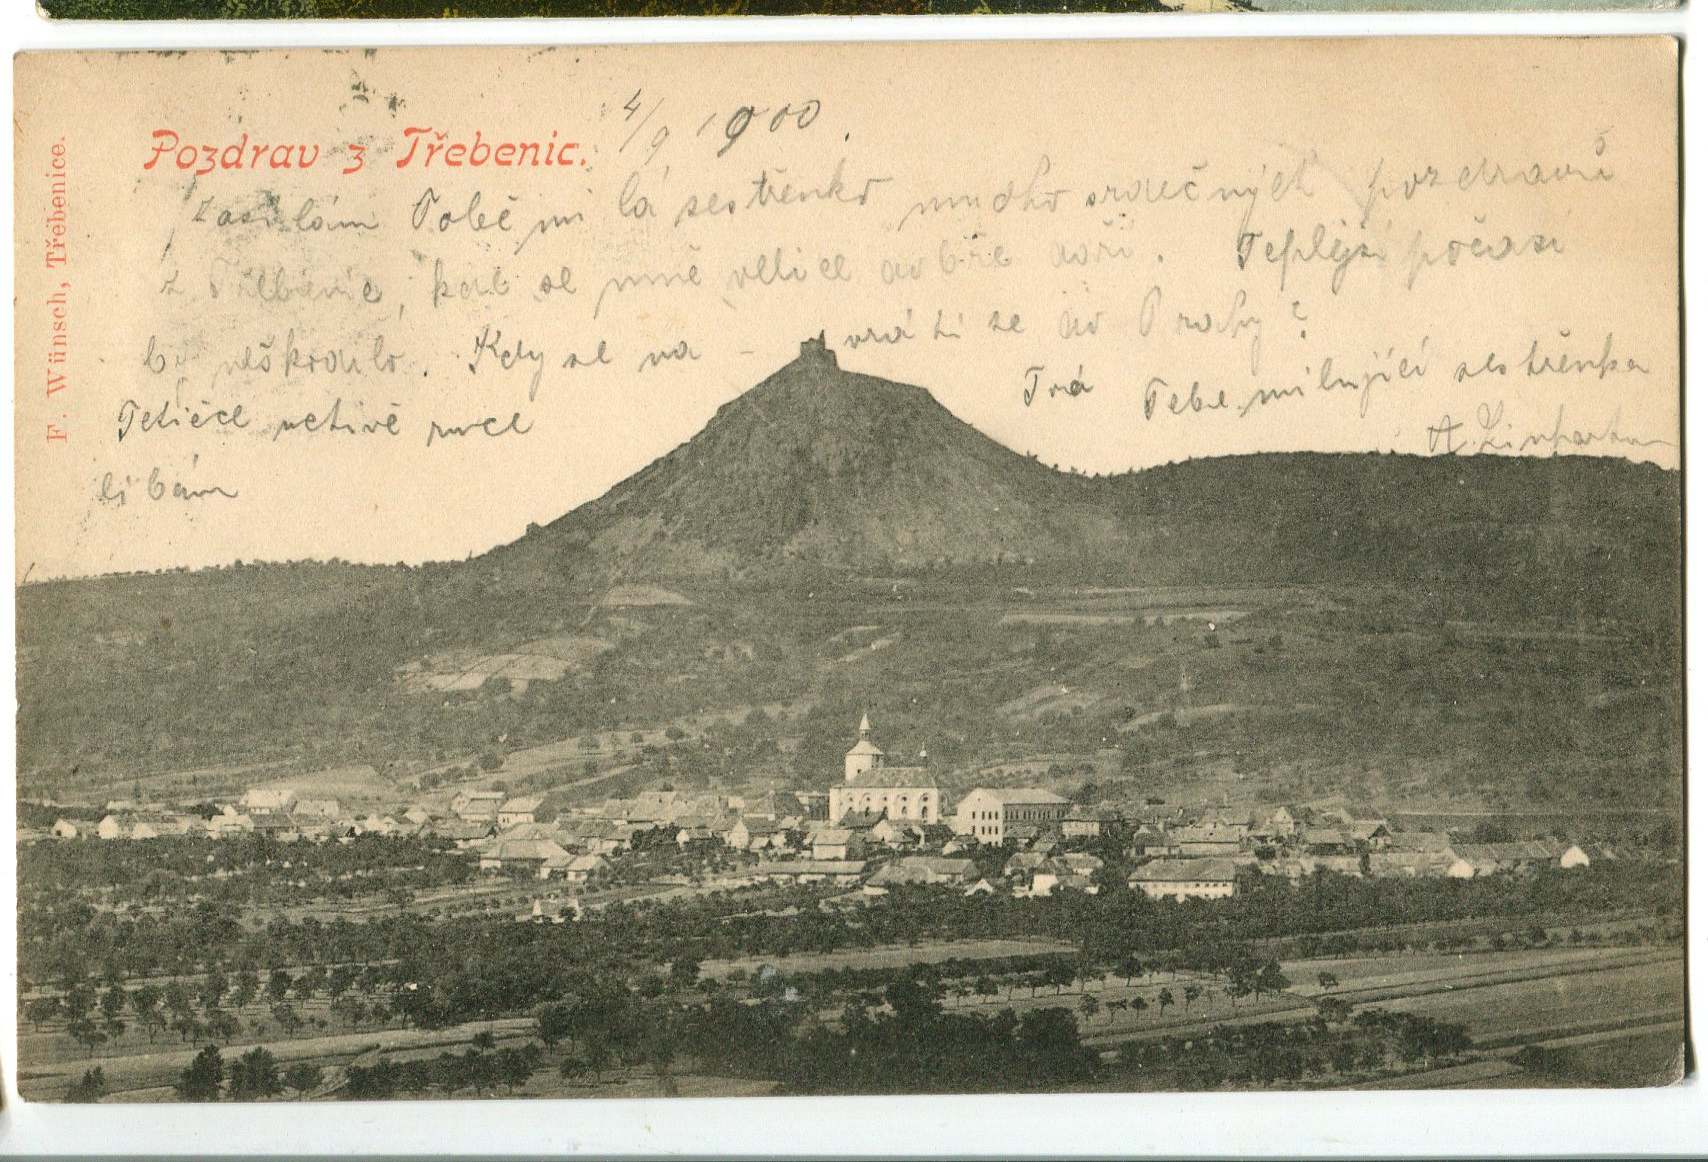 Pozdrav z Třebenic.
4/9 1900.
Zasílám Tobě milá sestřenko mnoho srdečných pozdravů
z Třebenic, kde se mně velice dobře daří. Teplejší počasí
by neškodilo. Kdy se va - vrátí se do Prahy?
Tvá Tebe milující sestřenka
Tetičce uctivě ruce
A. Linhartova
líbám
F. Wünsch, Třebenice.